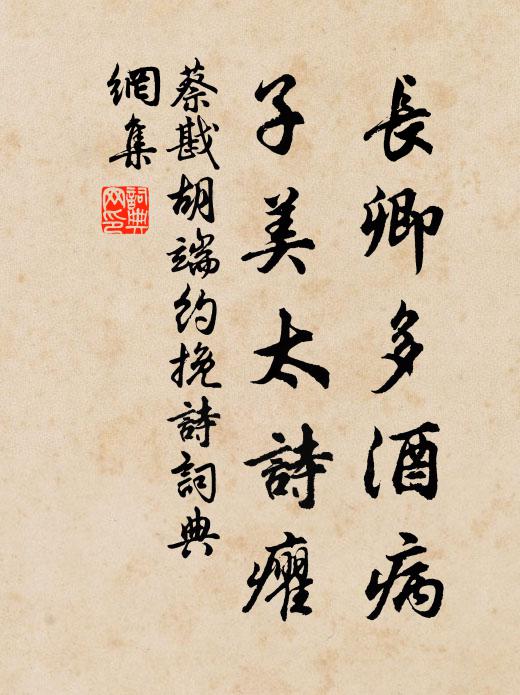 長卿多酒病
子美太詩癯
蔡戡胡端約挽詩詞典
網集
詞典
网印